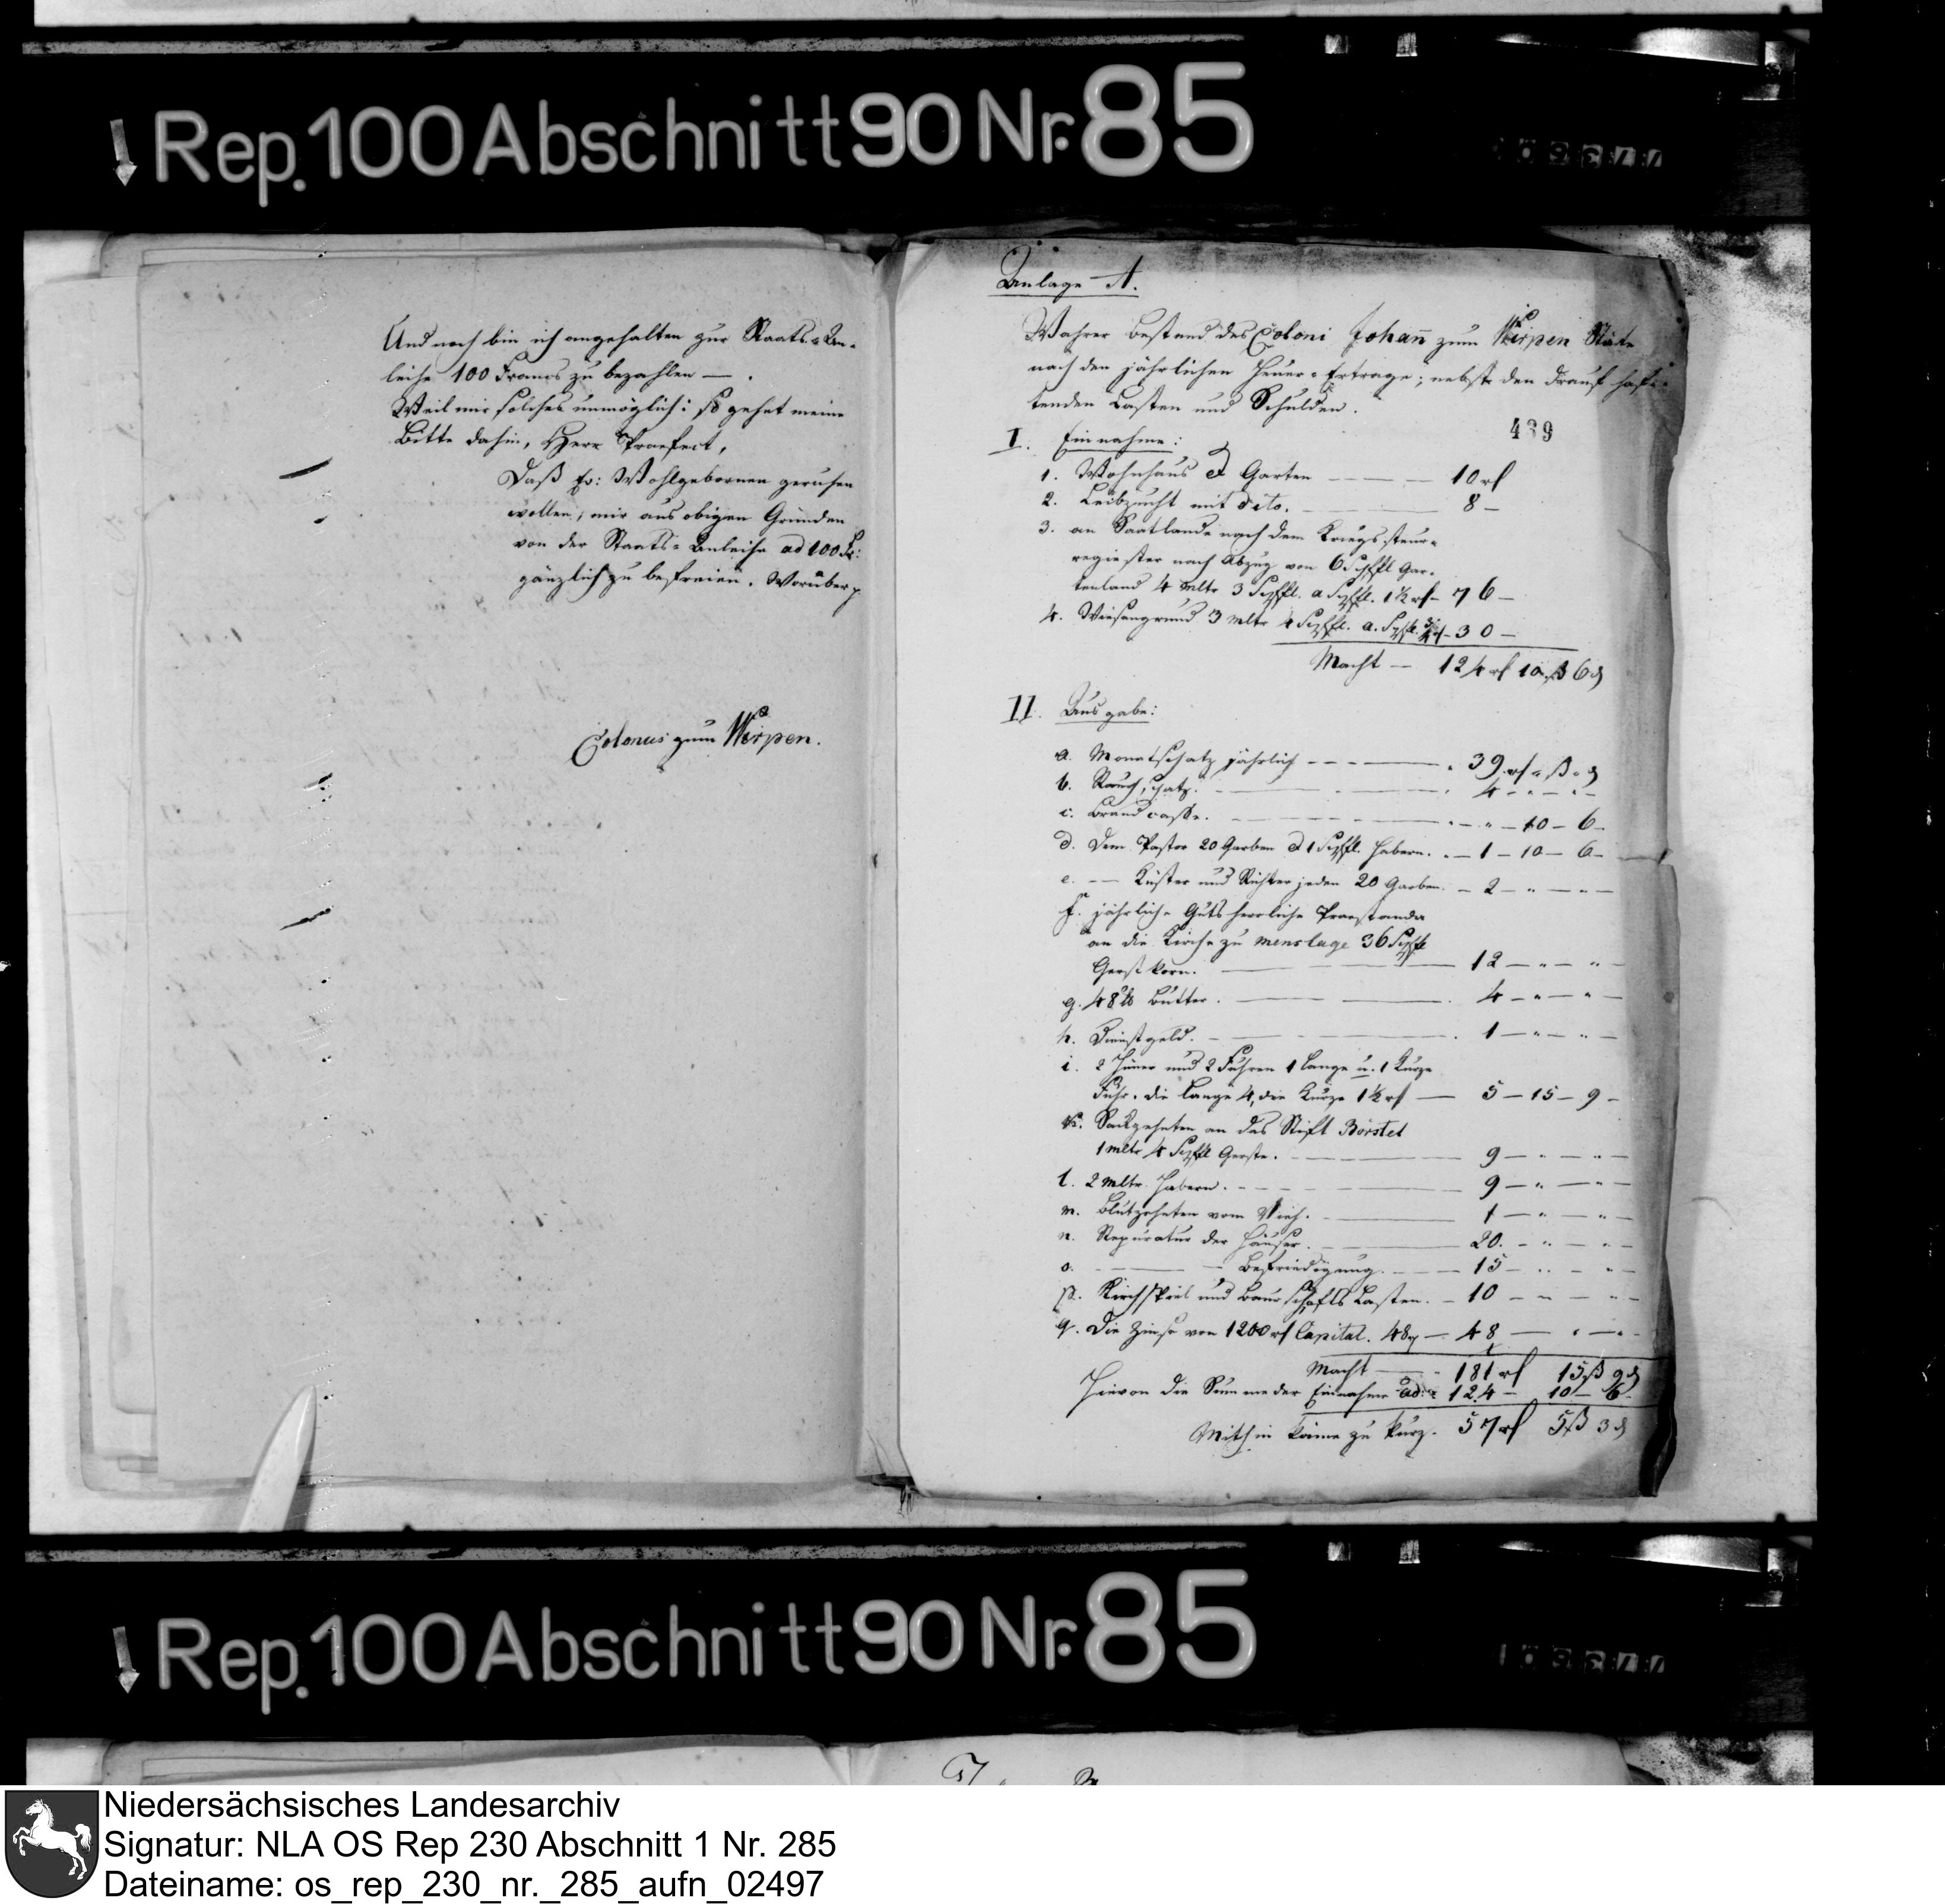 Rep. 100 Abschnitt 90 Nr. 85
Und noch bin ich angehalten zur Staats-An-
leihe 100 Francs zu bezahlen — .
Weil mir solches unmöglich: so gehet meine
Bitte dahin, Herr Praefect,
Daß Ew: Wohlgebornen geruhen
wollen, mir aus obigen Gründen
von der Staats-Anleihe ad 100 Fr:
gänzlich zu befreien. Worüber p
Colonus zum Wirpen.
Anlage A.
Wahrer Bestand des Coloni Johan̄ zum Wirpen Stäte
nach den jährlichen Heuer-Ertrage; nebst den drauf haf-
tenden Lasten und Schulden.
439
I. Einnahme:
1. Wohnhaus & Garten — 10 rt
2. Leibzucht mit dito. — 8 –
3. an Saatlande nach dem Kriegssteur-
regiester nach Abzug von 6 Schffl Gar-
tenland 4 Mltr 3 Schffl. a Schffl. 1½ rt – 76 –
4. Wiesengrund 3 Mltr 4 Schffl. a. Schffl. ¾ rt – 30 –
Macht — 124 rt 10 ß 6 d
II. Ausgabe:
a. Monatschatz jährlich — 39 rt " ß " d
b. Rauchschatz. — 4 " – " –
c. Brandcasse. — " – 10 – 6 –
d. Dem Pastor 20 Garben & 1 Schffl. Habern. — 1 – 10 – 6 –
e. — Küster und Richter jeden 20 Garben. – 2 – " – " –
f. jährliche Gutsherrliche Praestanda
an die Kirche zu Menslage 36 Schffl
Gerstkorn. — 12 – " – " –
g. 48 ℔ Butter. — 4 – " – " –
h. Dienstgeld. — 1 – " – " –
i. 2 Hüner und 2 Fuhren 1 Lange u. 1 Kurze
Fuhr. die Lange 4, die Kurze 1½ rt — 5 – 15 – 9 –
k. Sackzehnten an das Stift Börstel
1 Mltr 4 Schffl Gerste. — 9 – " – " –
l. 2 Mltr. Habern. — 9 – " – " –
m. Blutzehnten vom Vieh. — 1 – " – " –
n. Reparatur der Häuser. — 20. – " – " –
o. — — Befriedigung. — 15 – " – " –
p. Kirchspiel und Baurschafts Lasten. – 10 – " – " –
q. Die Zinse von 1200 rt Capital. — 48 — " – " –
Macht — 181 rt 15 ß 9 d
Hievon die Summe der Einnahme ad: – 124 – 10 – 6 –
Mithin käme zu kurz. 57 rt 5 ß 3 d
Rep. 100 Abschnitt 90 Nr. 85
Niedersächsisches Landesarchiv
Signatur: NLA OS Rep 230 Abschnitt 1 Nr. 285
Dateiname: os_rep_230_nr._285_aufn_02497